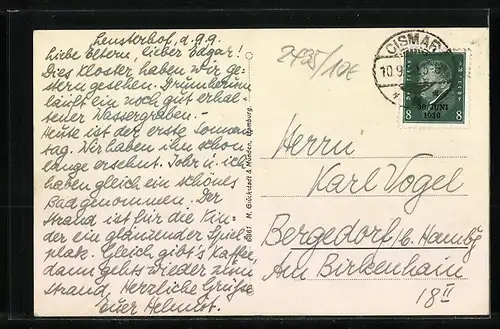 Lensterhof, d. 9.9.
Liebe Eltern, lieber Edgar!
Dies Kloster haben wir ge-
stern gesehen. Drumherum
läuft ein noch gut erhal-
tener Wassergraben. -
Heute ist der erste Sonnen-
tag. Wir haben ihn schon
lange ersehnt. Id. u. ich
haben gleich ein schönes
Bad genommen. Der
Strand ist für die Kin-
der ein glänzender Spiel-
platz. Gleich gibt's Kaffee,
dann gehts wieder zum
Strand. Herzliche Grüße
Euer Helmut.
6861 M. Glückstadt & Münden, Hamburg.
2435/10€
CISMAR
10.9.
30. JUNI
1930
8 8
Herrn
Karl Vogel
Bergedorf b. Hambg
Am Birkenhain
18 II